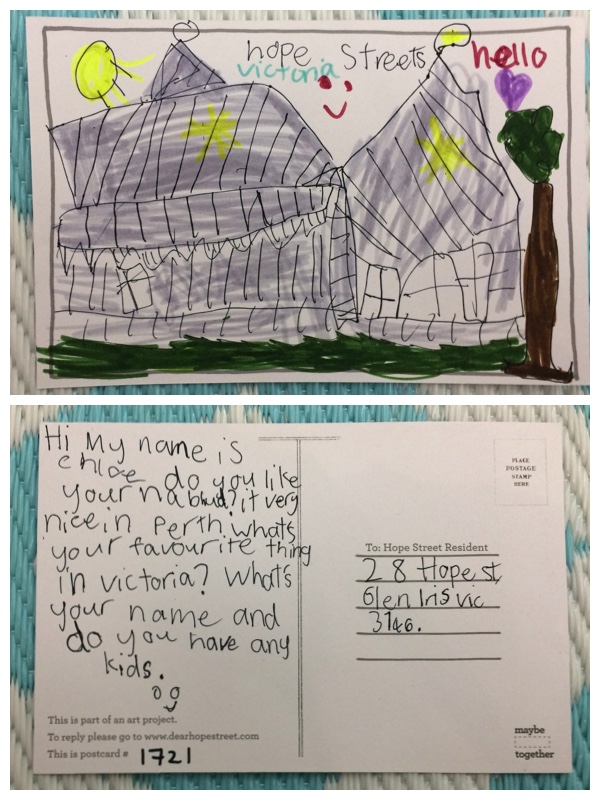 hope Streets
victoria
hello
Hi My name is
chloe do you like
your nabhud? it very
nice in Perth. whats
your favourite thing
in victoria? What's
your name and
do you have any
kids.
This is part of an art project.
To reply please go to www.dearhopestreet.com
This is postcard # 1721
PLACE
POSTAGE
STAMP
HERE
To: Hope Street Resident
28 Hope st,
Glen Iris vic
3146.
maybe
together